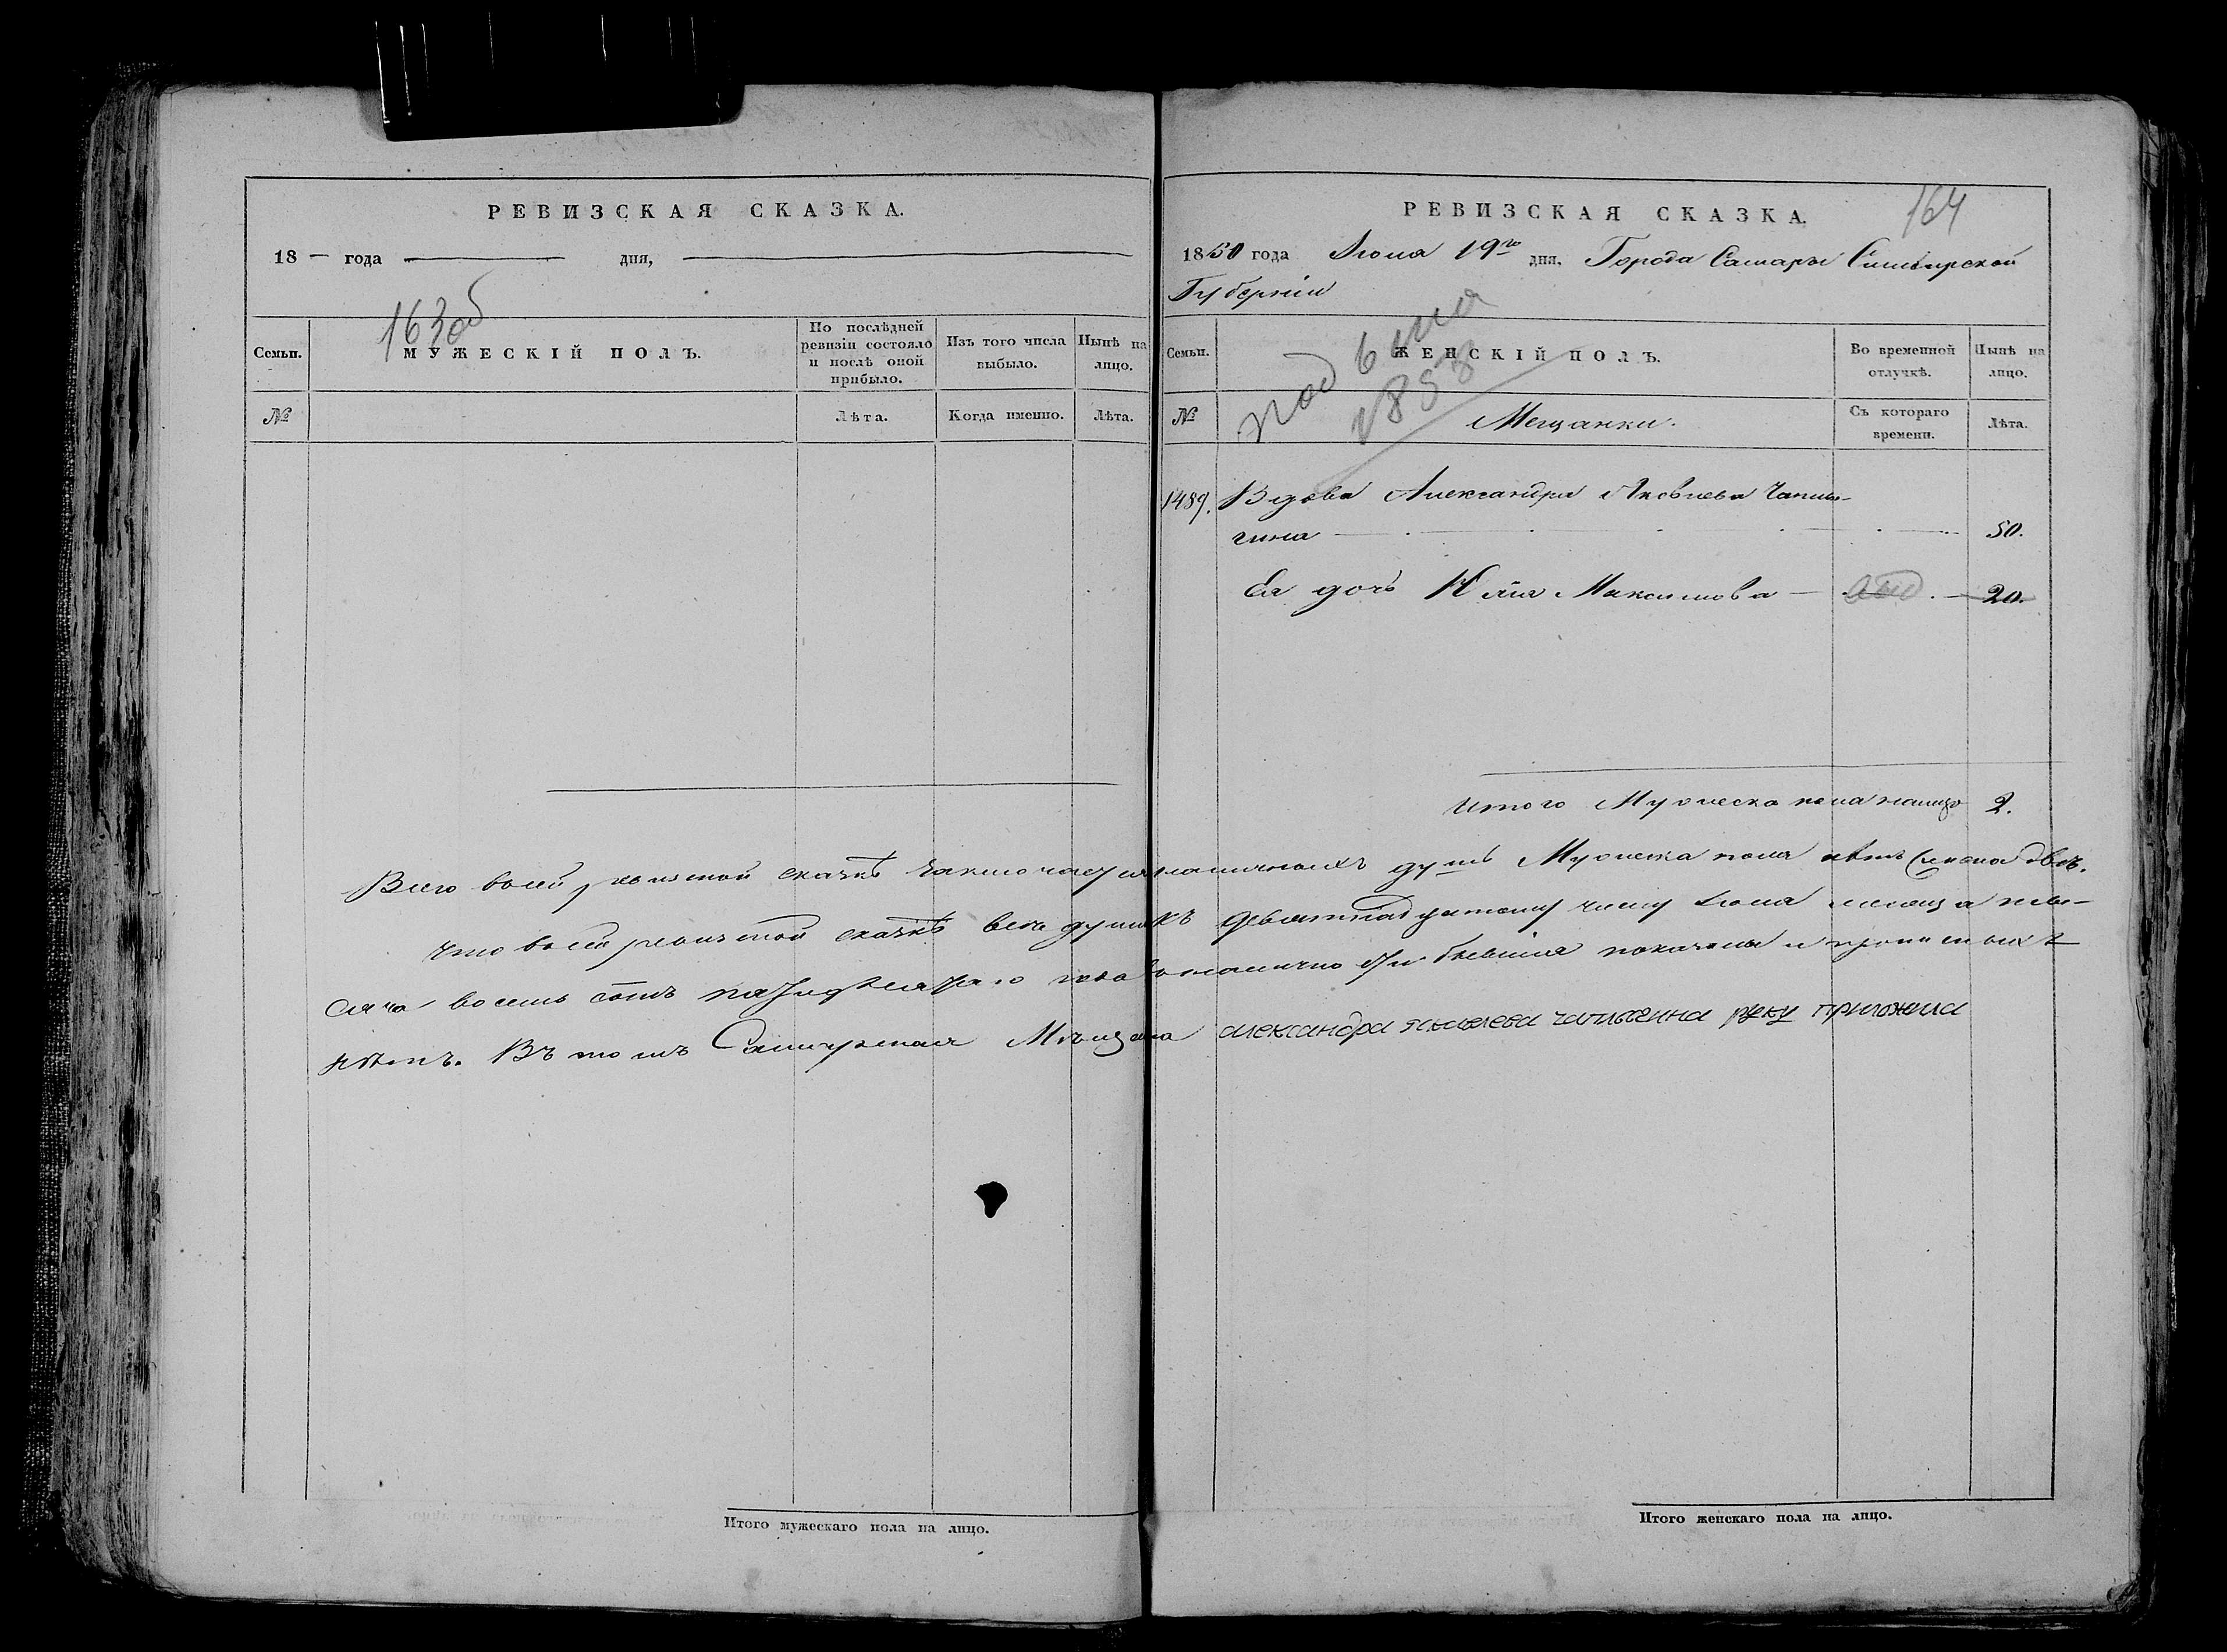 РЕВИЗСКАЯ СКАЗКА.
18 — года — дня, —
163 об
Семьи.
МУЖЕСКІЙ ПОЛЪ.
По послѣдней ревизіи состояло и послѣ оной прибыло.
Изъ того числа выбыло.
Нынѣ на лицо.
№
Лѣта.
Когда именно.
Лѣта.
РЕВИЗСКАЯ СКАЗКА.
164
1850 года Іюля 19го дня, Города Самары Симбирской
Губерніи
Семьи.
ЖЕНСКІЙ ПОЛЪ.
Во временной отлучкѣ.
Нынѣ на лицо.
№
Мещанки.
Съ котораго времени.
Лѣта.
1853
1489. Вдова Александра Яковлева Чаплы-
гина — 50.
Ея дочь Юлія Максимова — 20.
Итого на лицо 2.
Всего въ сей ревизской сказкѣ заключается наличныхъ душъ Мужеска пола нѣтъ двѣ.
Что въ сей ревизской сказкѣ всѣ души къ девятнадцатому числу Іюля мѣсяца ты-
сяча восемь сотъ пятидесятаго года налично бывшія показаны и прописныхъ
нѣтъ. Въ томъ Самарская Мѣщанка александра яковлева чаплыгина руку приложила
Итого мужескаго пола на лицо.
Итого женскаго пола на лицо.